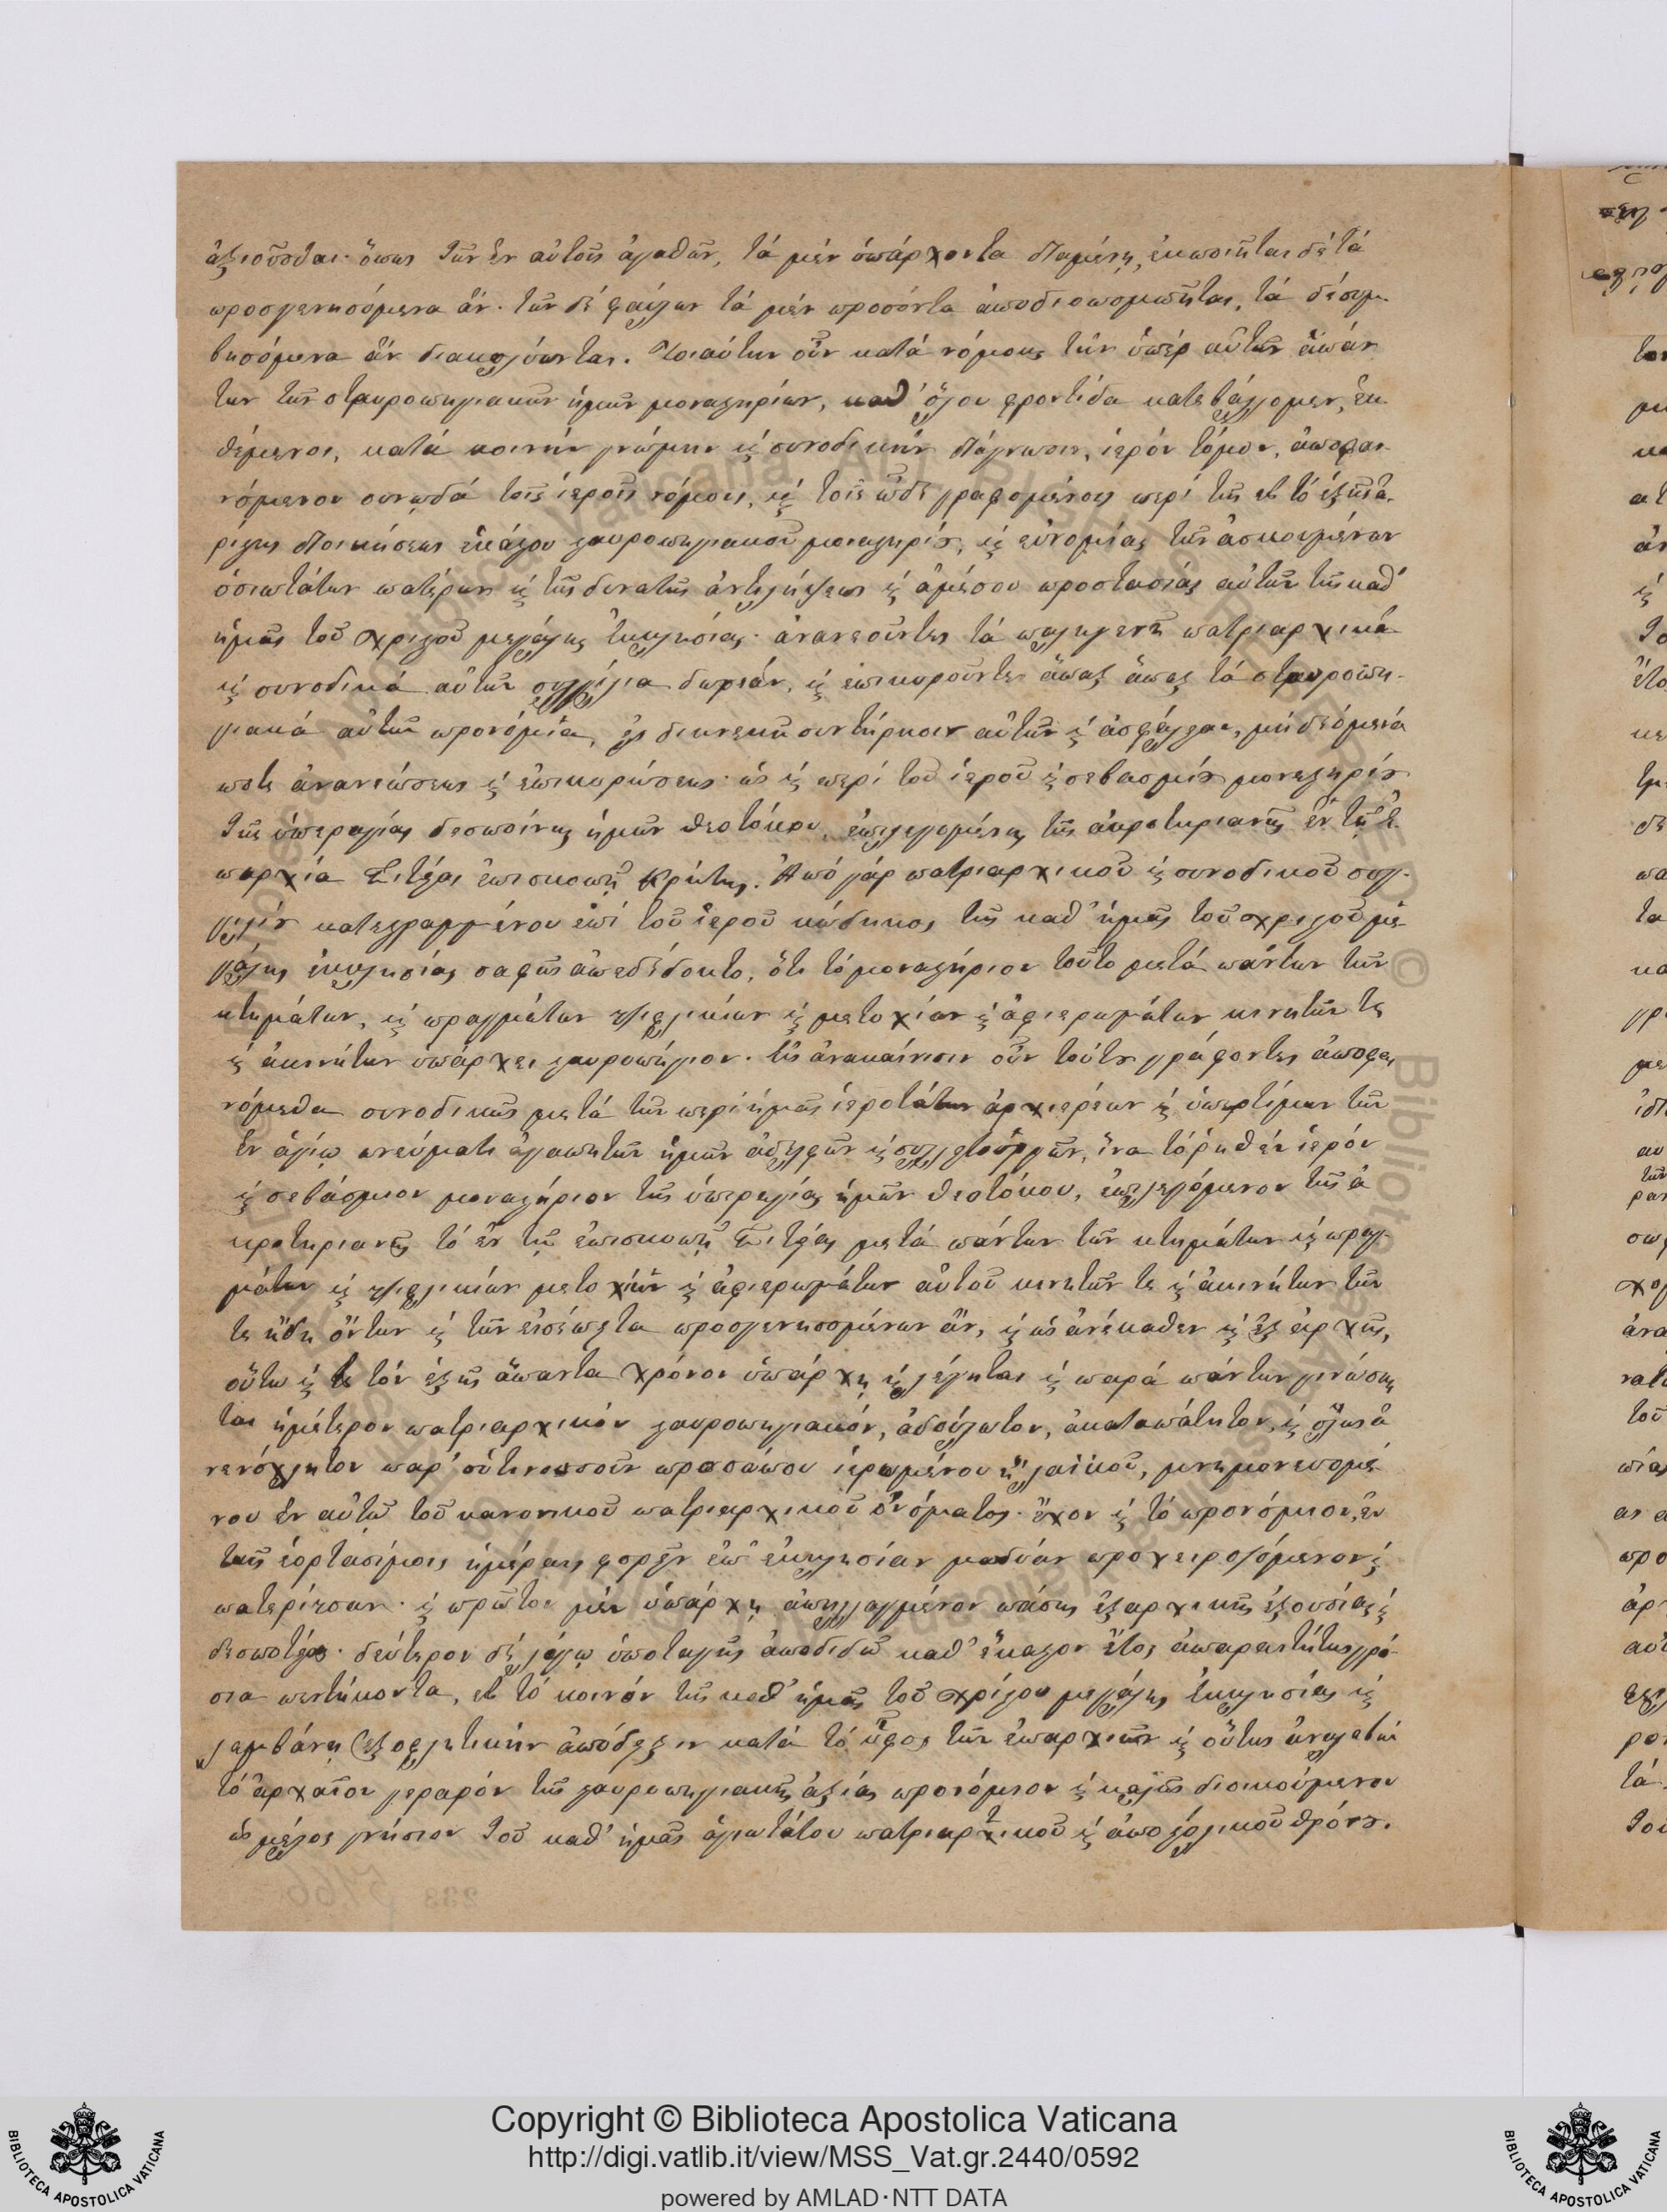 ἀξιοῦσθαι· ὅπως τῶν ἐν αὐτοῖς ἀγαθῶν, τὰ μὲν ὑπάρχοντα διαμένῃ, ἐκποιῆται δὲ τὰ
προσγενησόμενα ἄν· τῶν δὲ φαύλων τὰ μὲν προσόντα ἀποδιοπομπῆται, τὰ δὲ συμ-
βησόμενα ἄν διακωλύωνται. Τοιαύτην οὖν κατὰ νόμους τὴν ὑπὲρ αὐτῶν ἁπάν
των τῶν σταυροπηγιακῶν ἡμῶν μοναστηρίων, καθ' ὅλου φροντίδα κατεβάλλομεν, ἐκ
θέμενοι, κατὰ κοινὴν γνώμην καὶ συνοδικὴν διάγνωσιν, ἱερὸν τόμον, ἀποφαι-
νόμενον συνῳδὰ τοῖς ἱεροῖς νόμοις, καὶ τοῖς ὧδε γραφομένοις περὶ τῆς εἰς τὸ ἑξῆς ἀ-
ρίστης διοικήσεως ἑκάστου σταυροπηγιακοῦ μοναστηρίου, καὶ εὐνομίας τῶν ἀσκουμένων
ὁσιωτάτων πατέρων καὶ τῆς δυνατῆς ἀντιλήψεως καὶ ἀμέσου προστασίας αὐτῶν τῆς καθ'
ἡμᾶς τοῦ Χριστοῦ μεγάλης ἐκκλησίας· ἀνανεοῦντες τὰ παλαιγενῆ πατριαρχικὰ
καὶ συνοδικὰ αὐτῶν συγγίλλια δωρεάν, καὶ ἐπικυροῦντες ἅπαξ ἅπας τὰ σταυροπη-
γιακὰ αὐτῶν προνόμια, εἰς διηνεκῆ συντήρησιν αὐτῶν καὶ ἀσφάλειαν, μὴ δεόμενά
ποτε ἀνανεώσεως καὶ ἐπικυρώσεως· ὡς καὶ περὶ τοῦ ἱεροῦ καὶ σεβασμίου μοναστηρίου
τῆς ὑπεραγίας δεσποίνης ἡμῶν Θεοτόκου, ἐπιλεγομένης τῆς ἀκροτηριανῆς ἐν τῇ ἐ
παρχίᾳ Σιτείας ἐπισκοπῇ Κρήτης. Ἀπὸ γὰρ πατριαρχικοῦ καὶ συνοδικοῦ συγ-
γιλίου κατεστραμμένου ἐπὶ τοῦ ἱεροῦ κώδηκος τῆς καθ' ἡμᾶς τοῦ Χριστοῦ με-
γάλης ἐκκλησίας σαφῶς ἀπεδέδοκτο, ὅτι τὸ μοναστήριον τοῦτο μετὰ πάντων τῶν
κτημάτων, καὶ πραγμάτων τζιφλικίων καὶ μετοχίων καὶ ἀφιερωμάτων κινητῶν τε
καὶ ἀκινήτων ὑπάρχει σταυροπήγιον· εἰς ἀνακαίνισιν οὖν τούτου γράφοντες ἀποφαι
νόμεθα συνοδικῶς μετὰ τῶν περὶ ἡμᾶς ἱεροτάτων ἀρχιερέων καὶ ὑπερτίμων τῶν
ἐν ἁγίῳ πνεύματι ἀγαπητῶν ἡμῶν ἀδελφῶν καὶ συλλειτουργῶν, ἵνα τὸ ῥηθὲν ἱερὸν
καὶ σεβάσμιον μοναστήριον τῆς ὑπεραγίας ἡμῶν Θεοτόκου, ἐπιλεγόμενον τῆς ἀ
κροτηριανῆς τὸ ἐν τῇ ἐπισκοπῇ Σιτείας μετὰ πάντων τῶν κτημάτων καὶ πραγ-
μάτων καὶ τζιφλικίων μετοχίων καὶ ἀφιερωμάτων αὐτοῦ κινητῶν τε καὶ ἀκινήτων τῶν
τε ἤδη ὄντων καὶ τῶν εἰσέπειτα προσγενησομένων ἄν, καὶ ὡς ἀνέκαθεν καὶ ἐξ ἀρχῆς,
οὕτω καὶ εἰς τὸν ἑξῆς ἅπαντα χρόνον ὑπάρχῃ καὶ λέγηται καὶ παρὰ πάντων γινώσκη
ται ἡμέτερον πατριαρχικὸν σταυροπηγιακόν, ἀδούλωτον, ἀκαταπάτητον, καὶ ὅλως ἀ
νενόχλητον παρ' οὑτινοσοῦν προσώπου ἱερωμένου ἢ λαϊκοῦ, μνημονευομέ
νου ἐν αὐτῷ τοῦ κανονικοῦ πατριαρχικοῦ ὀνόματος· ἔχον καὶ τὸ προνόμιον, ἐν
ταῖς ἑορτασίμοις ἡμέραις φορεῖν ἐπ' ἐκκλησίαν μαδύαν προχειροζόμενον καὶ
πατερίτσαν· καὶ πρῶτον μὲν ὑπάρχῃ ἀπηλλαγμένον πάσης ἐξαρχικῆς ἐξουσίας καὶ
δεσποτείας· δεύτερον δὲ λόγῳ ὑποταγῆς ἀποδιδῷ καθ' ἕκαστον ἔτος ἀπαραιτήτως γρό-
σια πεντήκοντα, εἰς τὸ κοινὸν τῆς καθ' ἡμᾶς τοῦ Χριστοῦ μεγάλης ἐκκλησίας καὶ
λαμβάνῃ ἐξοφλητικὴν ἀπόδειξιν κατὰ τὸ ὕφος τῶν ἐπαρχιῶν καὶ οὕτως ἀναλαβὼν
τὸ ἀρχαῖον γεραρὸν τῆς σταυροπηγιακῆς ἀξίας προνόμιον καὶ καλῶς διοικούμενον
ὡς μέλος γνήσιον τοῦ καθ' ἡμᾶς ἁγιωτάτου πατριαρχικοῦ καὶ ἀποστολικοῦ θρόνου.
Copyright © Biblioteca Apostolica Vaticana
http://digi.vatlib.it/view/MSS_Vat.gr.2440/0592
powered by AMLAD·NTT DATA
BIBLIOTECA APOSTOLICA VATICANA
BIBLIOTECA APOSTOLICA VATICANA